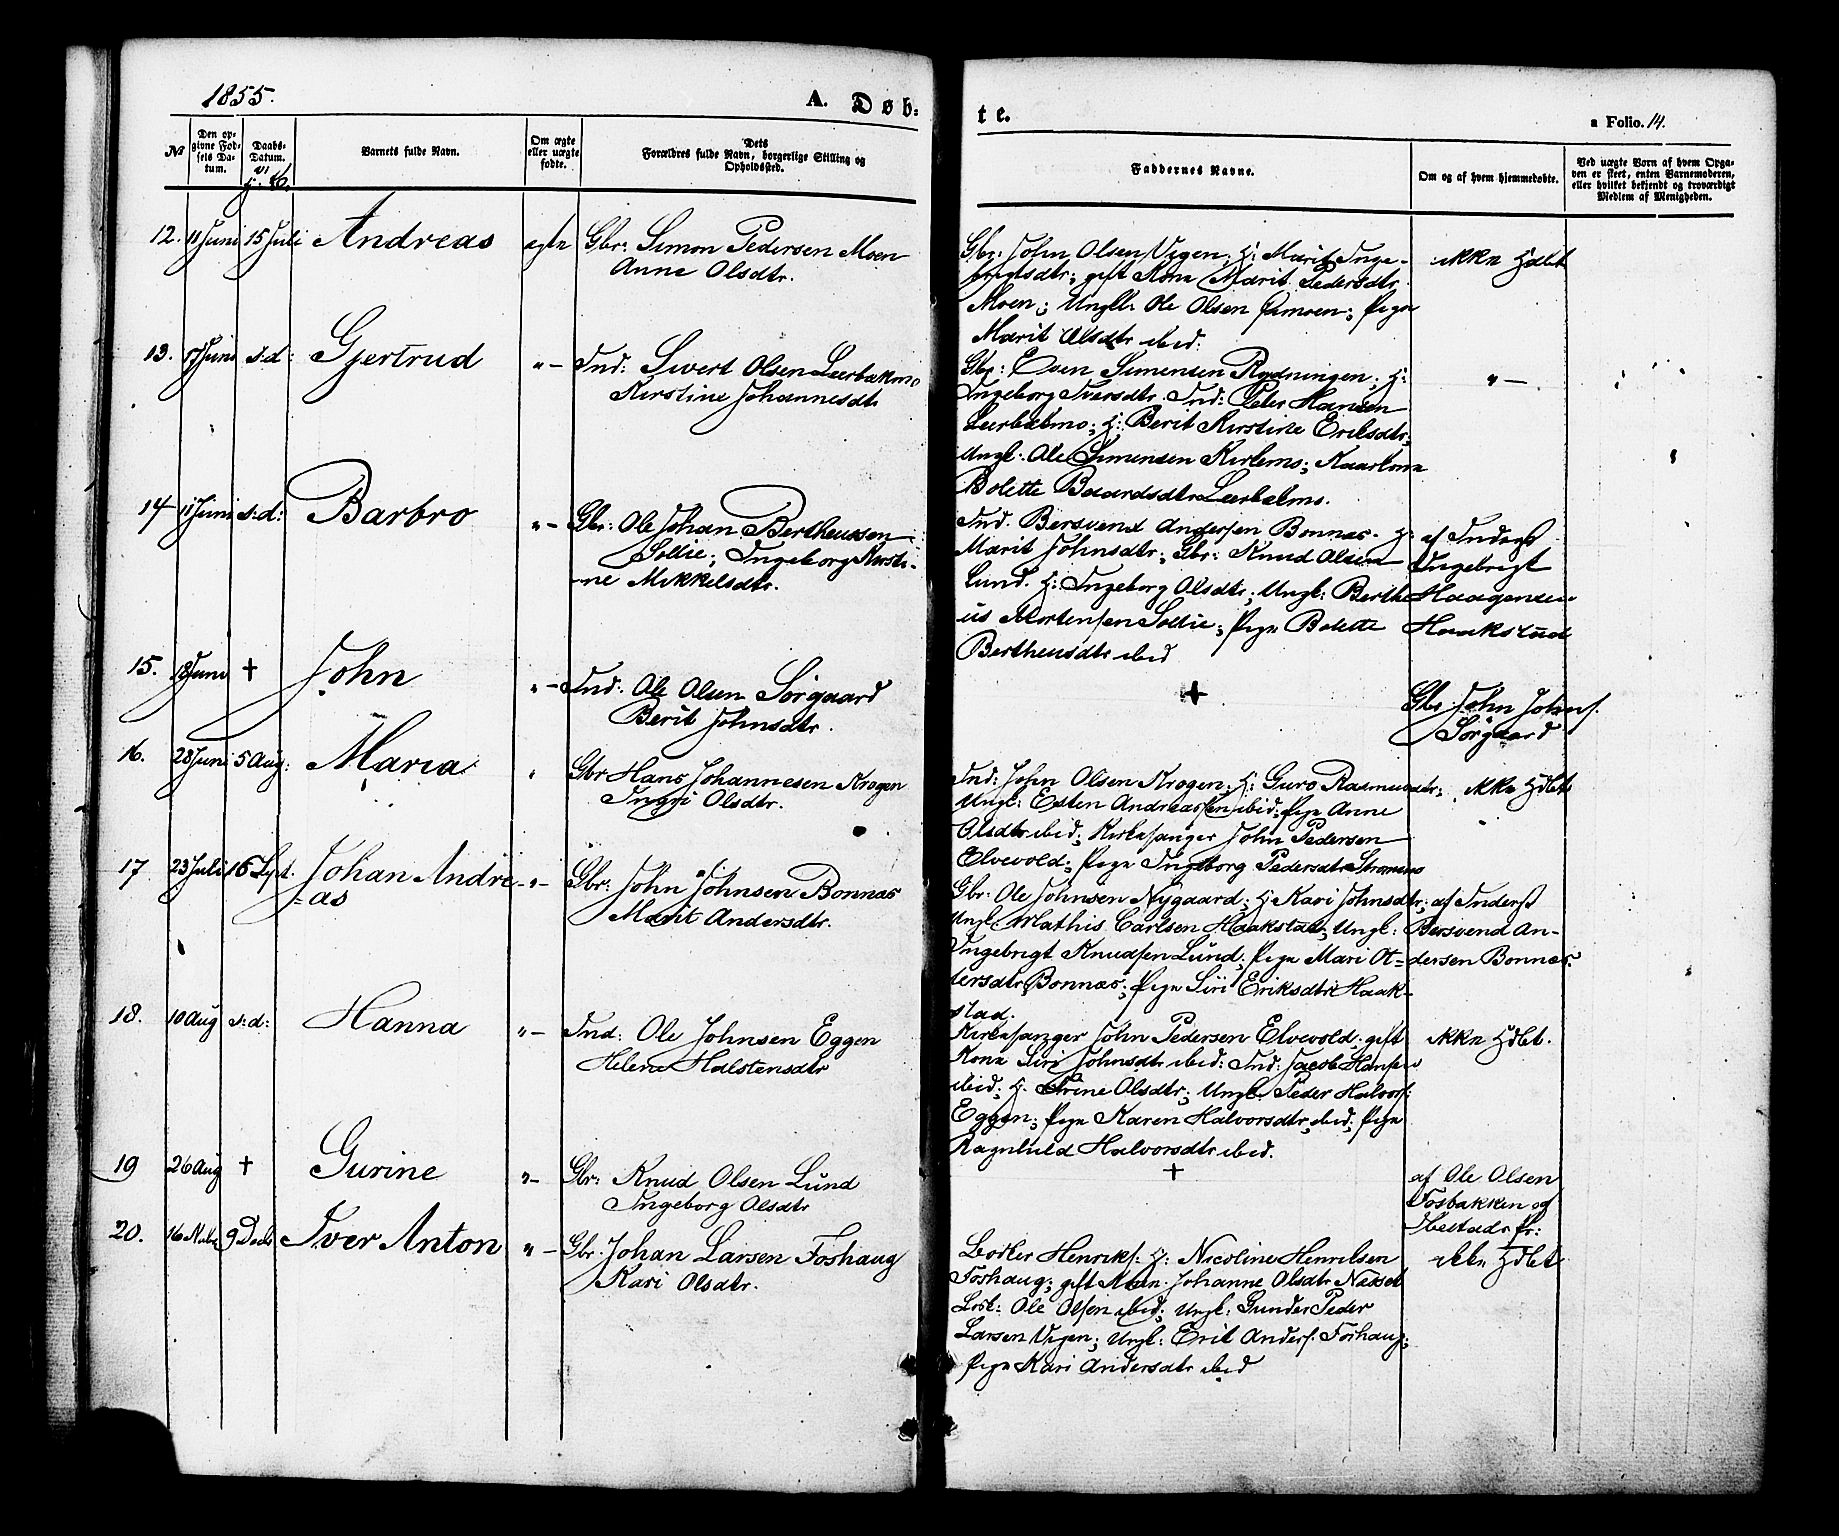 1855.
A. Døb-
te.
a Folio. 14.
№
Den op-
givne Fød-
sels Da-
tum.
Daabs-
Datum.
Barnets fulde Navn.
Om ægte
eller uægte
fødte.
Dets
Forældres fulde Navn, borgerlige Stilling og
Opholdssted.
Faddernes Navne.
Om og af hvem hjemmedøbte.
Ved uægte Børn af hvem Opga-
ven er skeet, enten Barnemoderen,
eller hvilket bekjendt og troværdigt
Medlem af Menigheden.
12. 11 Juni 15 Juli Andreas ægte Gbr: Simon Pedersen Moen
Anne Olsdtr.
Gbr. John Olsen Vigen; H: Marit Inge-
brigtsdtr; gift Kone Marit Pedersdtr
Moen; Ungk. Ole Olsen Ramoen; Pige
Marit Olsdtr ibid.
ikke Hdbt
13. 17 Juni s:d: Gjertrud "- Ind: Sivert Olsen Leerbækmo
Kirstine Johannesdtr
Gbr: Even Simensen Rydningen; H:
Ingeborg Iversdtr. Ind: Peter Hansen
Leerbækmo; H: Berit Kirstine Eriksdtr;
Ungk. Ole Simensen Kirkemo; Kaarkone
Bolette Baardsdtr Leerbækmo.
"-
14 11 Juni s:d: Barbro "- Gbr: Ole Johan Bertheussen
Sollie; Ingeborg Kirsti-
-ne Mikkelsdtr.
Ind. Bersvend Andersen Bonnes. H:
Marit Johnsdtr; Gbr: Knud Olsen
Lund. H: Ingeborg Olsdtr; Ungk: Berthe
us Mortensen Sollie; Pige Bolette
Bertheusdtr ibid
af Inderst
Ingebrigt
Haagensen
Haakstad
15. 18 Juni + John "- Ind: Ole Olsen Sørgaard
Berit Johnsdtr.
+
Gbr. John Johns.
Sørgaard
16. 28 Juni 5 Aug: Maria " Gbr Hans Johannesen Krogen
Ingri Olsdtr.
Ind: John Olsen Krogen; H: Guro Rasmusdtr;
Ungk: Esten Andreassen ibid; Pige Anne
Olsdtr ibid; Kirkesanger John Pedersen
Elvevold; Pige Ingeborg Pedersdtr Strømmo
ikke Hdbt
17 23 Juli 16 Sept. Johan Andre
=as "- Gbr: John Johnsen Bonnes
Marit Andersdtr.
Gbr: Ole Johnsen Nygaard; H: Kari Johnsdtr;
Ungk. Mathis Carlsen Haakstad; Ungk:
Ingebrigt Knudsen Lund; Pige Mari Ol=
dersdtr Bonnes; Pige Siri Eriksdtr Haak-
stad.
af Inderst
Bersvend An-
dersen Bonnes.
18. 10 Aug s:d: Hanna "- Ind: Ole Johnsen Eggen
Helene Halstensdtr
Kirkesanger John Pedersen Elvevold; gift
Kone Siri Johnsdtr ibid; Ind: Jacob Hansen
ibid; H. Trine Olsdtr; Ungk. Peder Halvors.
Eggen; Pige Karen Halvorsdtr ibid; Pige
Ragnhild Halvorsdtr ibid.
ikke Hdbt.
19 26 Aug + Gurine "- Gbr: Knud Olsen Lund
Ingeborg Olsdtr
+
af Ole Olsen
Fosbakken og
Ibestads Pr:
20. 16 Nvbr 9 Decbr Iver Anton "- Gbr. Johan Larsen Foshaug
Kari Olsdtr.
Henriks. H: Nicoline Henriksen
Foshaug; gift Kone Johanne Olsdtr
Ole Olsen ibid; Ungk: Gunder Peder
Larsen Vigen; Ungk: Erik Anders. Foshaug;
Pige Kari Andersdtr ibid
ikke Hdbt